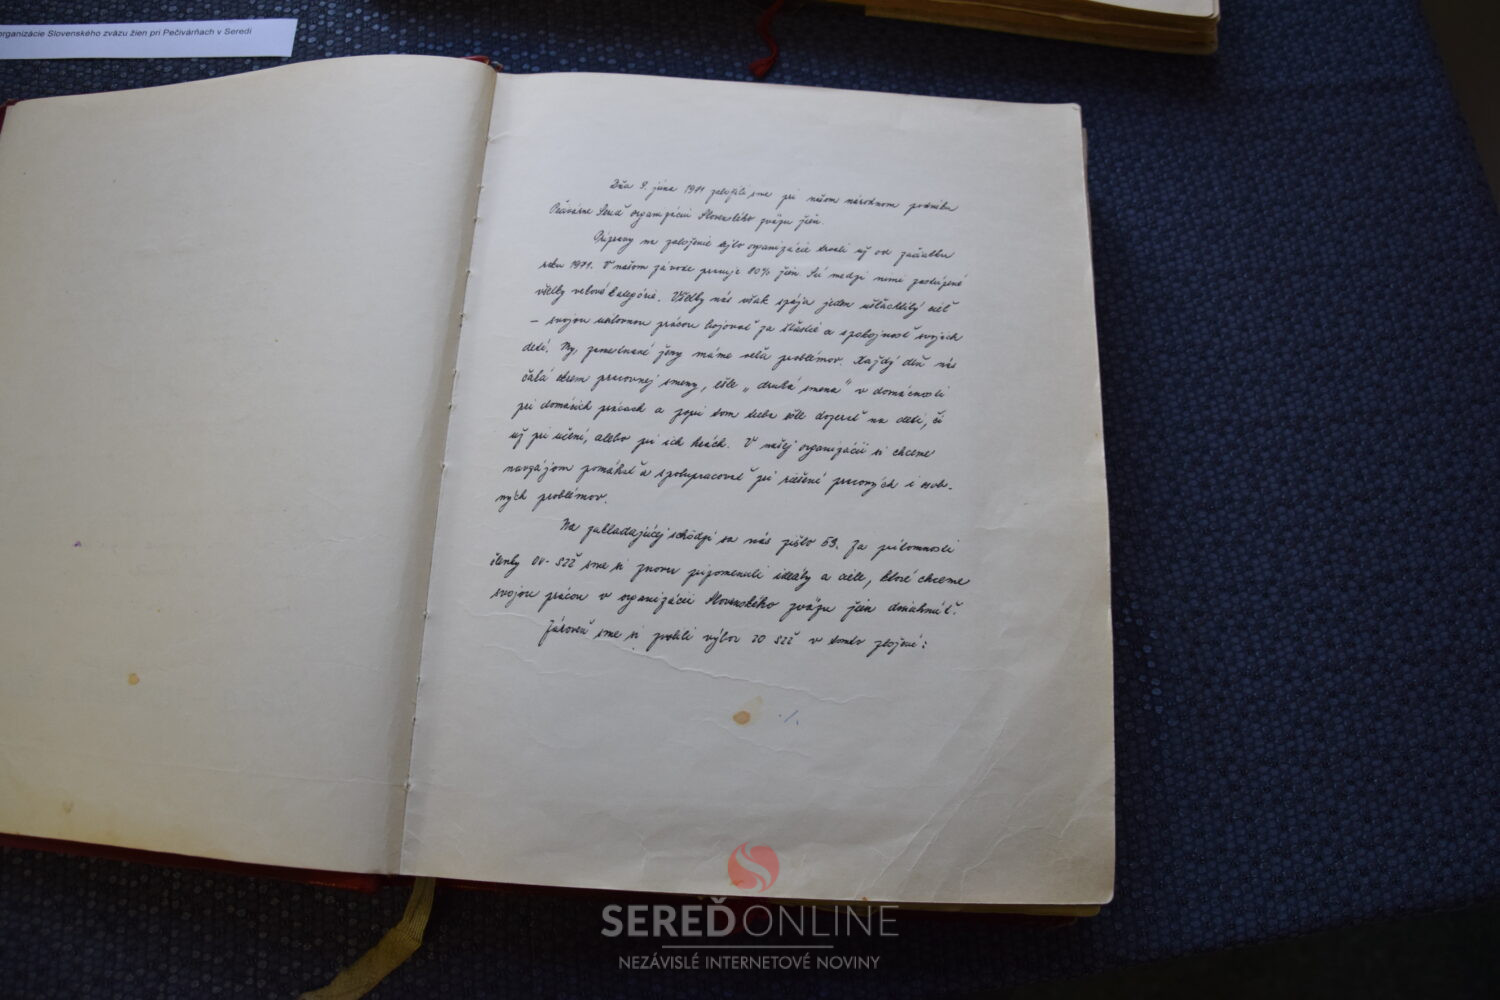 organizácie Slovenského zväzu žien pri Pečivárňach v Seredi
Dňa 9. júna 1971 založili sme pri našom národnom podniku
Pečivárne Sereď organizáciu Slovenského zväzu žien.
Prípravy na založenie tejto organizácie trvali už od začiatku
roku 1971. V našom závode pracuje 80% žien. Sú medzi nimi zastúpené
všetky vekové kategórie. Všetky nás však spája jeden ušľachtilý cieľ
– svojou usilovnou prácou bojovať za šťastie a spokojnosť svojich
detí. My, zamestnané ženy máme veľa problémov. Každý deň nás
čaká okrem pracovnej smeny, ešte „druhá smena" v domácnosti
pri domácich prácach a popri tom treba ešte dozerať na deti, či
už pri učení, alebo pri ich hrách. V našej organizácii si chceme
navzájom pomáhať a spolupracovať pri riešení pracovných i osob-
ných problémov.
Na zakladajúcej schôdzi sa nás zišlo 59. Za prítomnosti
členky OV-SZŽ sme si znovu pripomenuli ideály a ciele, ktoré chceme
svojou prácou v organizácii Slovenského zväzu žien dosiahnuť.
Zároveň sme si zvolili výbor ZO SZŽ v tomto zložení:
./.
SEREĎONLINE
NEZÁVISLÉ INTERNETOVÉ NOVINY